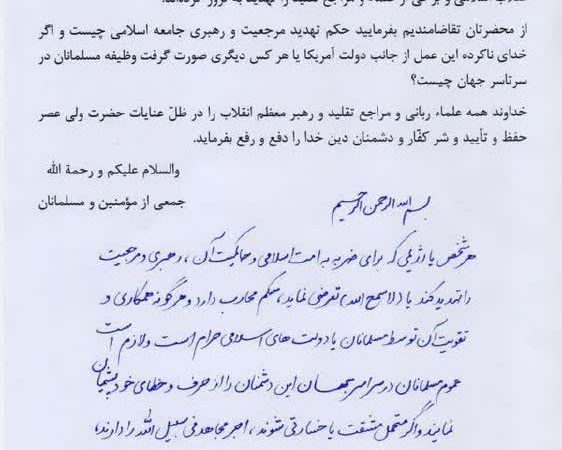 از محضرتان تقاضامندیم بفرمایید حکم تهدید مرجعیت و رهبری جامعه اسلامی چیست و اگر
خدای ناکرده این عمل از جانب دولت آمریکا یا هر کس دیگری صورت گرفت وظیفه مسلمانان در
سرتاسر جهان چیست؟
خداوند همه علماء ربانی و مراجع تقلید و رهبر معظم انقلاب را در ظلّ عنایات حضرت ولی عصر
حفظ و تأیید و شر کفّار و دشمنان دین خدا را دفع و رفع بفرماید.
والسلام علیکم و رحمة الله
جمعی از مؤمنین و مسلمانان
بسم الله الرحمن الرحیم
هر شخص یا رژیمی که برای ضربه به امت اسلامی و حاکمیت آن، رهبری و مرجعیت
را تهدید کند یا (لا سمح الله) تعرضی نماید، حکم محارب دارد و هرگونه همکاری و
تقویت آن توسط مسلمانان یا دولت های اسلامی حرام است و لازم است
عموم مسلمانان در سراسر جهان این دشمنان را از حرف و خطای خود پشیمان
نمایند و اگر متحمل مشقت یا خسارتی شوند، اجر مجاهد فی سبیل الله را دارند،